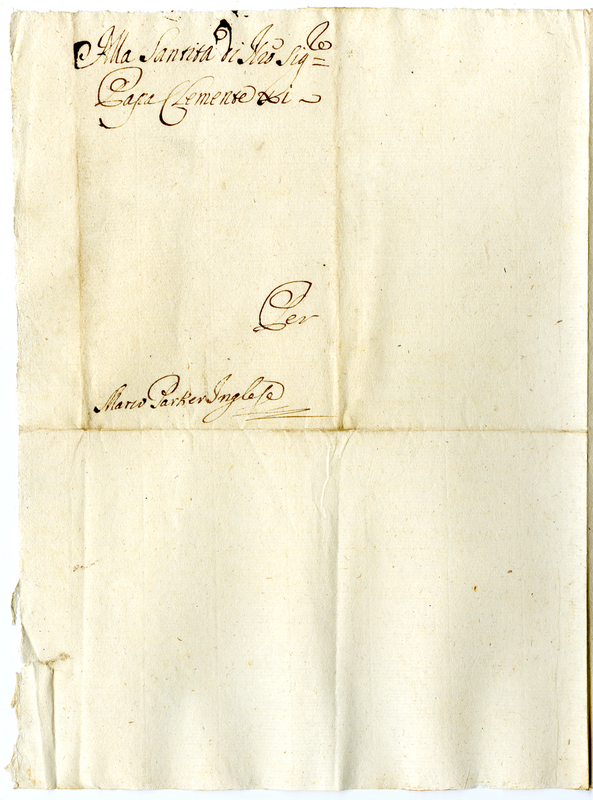 Alla Santità di Nro Sig=re
Papa Clemente xi
Per
Marco Parker Inglese